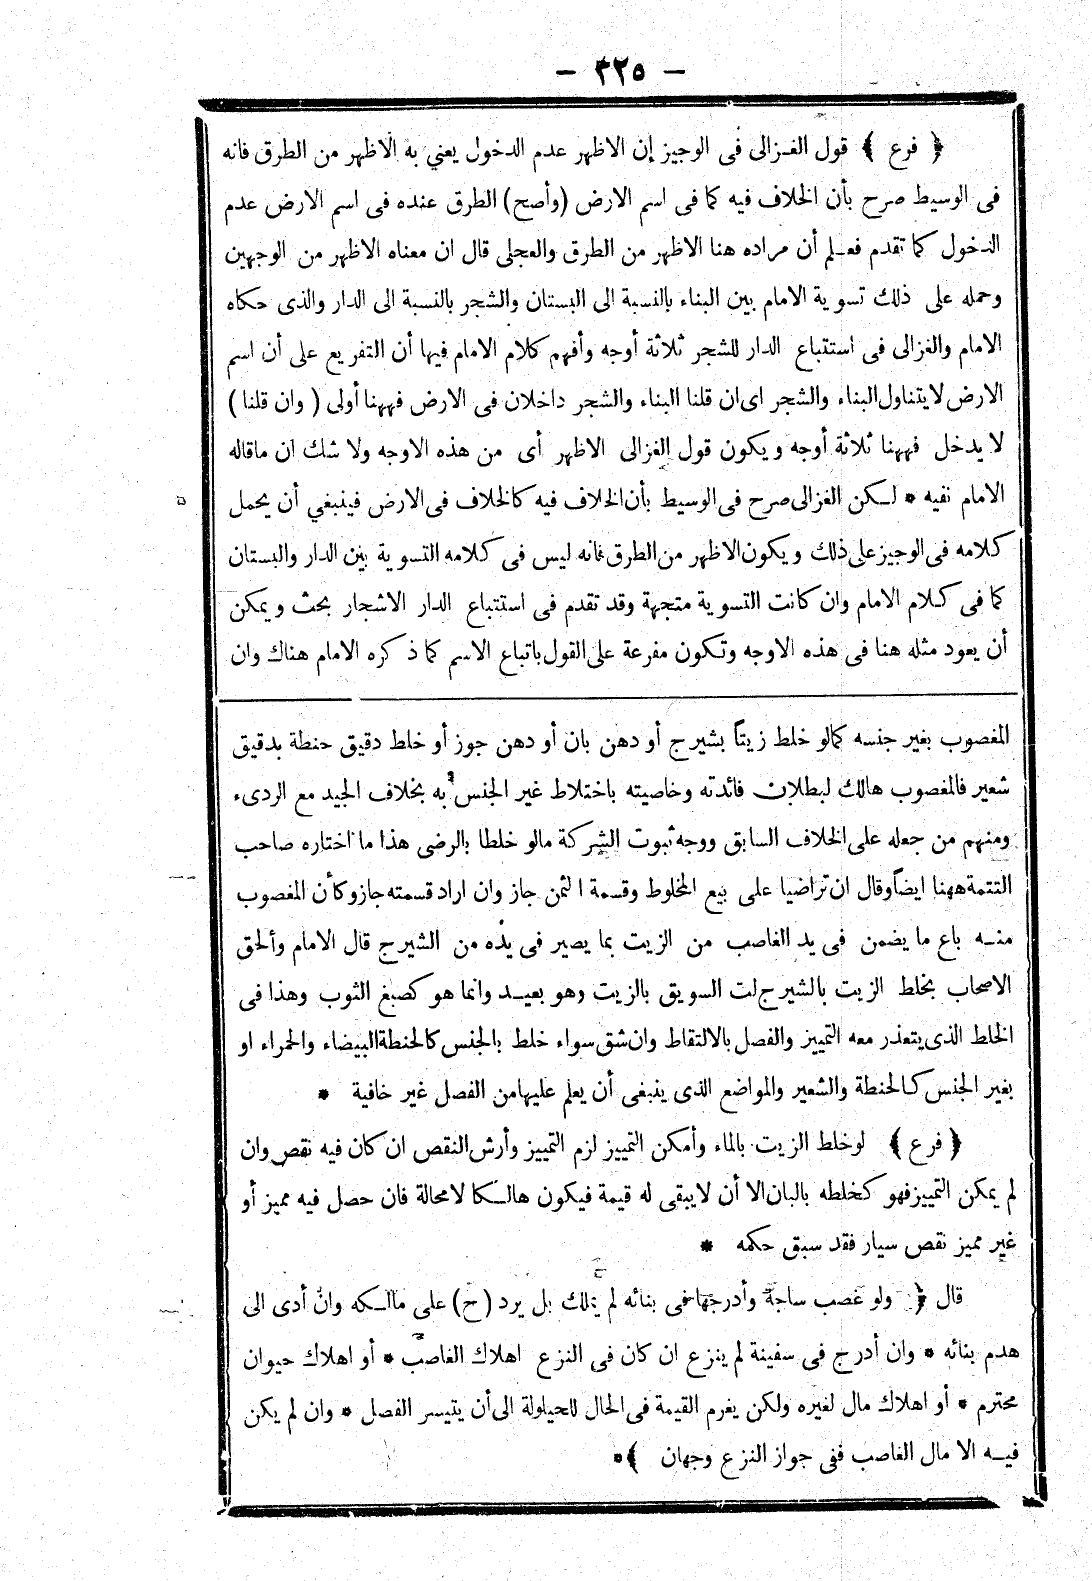 - ٣٢٥ -
﴿ فرع ﴾ قول الغزالى فى الوجيز إن الاظهر عدم الدخول يعني به الاظهر من الطرق فانه
فى الوسيط صرح بأن الخلاف فيه كما فى اسم الارض (وأصح) الطرق عنده فى اسم الارض عدم
الدخول كما تقدم فعلم أن مراده هنا الاظهر من الطرق والعجلى قال ان معناه الاظهر من الوجهين
وحمله على ذلك تسوية الامام بين البناء بالنسبة الى البستان والشجر بالنسبة الى الدار والذى حكاه
الامام والغزالى فى استتباع الدار للشجر ثلاثة أوجه وأفهم كلام الامام فيها أن التفريع على أن اسم
الارض لا يتناول البناء والشجر اى ان قلنا البناء والشجر داخلان فى الارض فههنا أولى ( وان قلنا )
لا يدخل فههنا ثلاثة أوجه ويكون قول الغزالى الاظهر أى من هذه الاوجه ولا شك ان ماقاله
الامام نفيه * لكن الغزالى صرح فى الوسيط بأن الخلاف فيه كالخلاف فى الارض فينبغي أن يحمل
كلامه فى الوجيز على ذلك ويكون الاظهر من الطرق فانه ليس فى كلامه التسوية بين الدار والبستان
كما فى كلام الامام وان كانت التسوية متجهة وقد تقدم فى استتباع الدار الاشجار بحث ويمكن
أن يعود مثله هنا فى هذه الاوجه وتكون مفرعة على القول باتباع الاسم كما ذكره الامام هناك وان
المغصوب بغير جنسه كمالو خلط زيتاً بشيرج أو دهن بان أو دهن جوز أو خلط دقيق حنطة بدقيق
شعير فالمغصوب هالك لبطلان فائدته وخاصيته باختلاط غير الجنس به بخلاف الجيد مع الردىء
ومنهم من جعله على الخلاف السابق ووجه ثبوت الشركة مالو خلطا بالرضى هذا ما اختاره صاحب
التتمة ههنا ايضاً وقال ان تراضيا على بيع المخلوط وقسمة الثمن جاز وان اراد قسمته جاز وكأن المغصوب
منه باع ما يضمن فى يد الغاصب من الزيت بما يصير فى يده من الشيرج قال الامام وألحق
الاصحاب بخلط الزيت بالشيرج لت السويق بالزيت وهو بعيد وانما هو كصبغ الثوب وهذا فى
الخلط الذى يتعذر معه التمييز والفصل بالالتقاط وان شق سواء خلط بالجنس كالحنطة البيضاء والحمراء او
بغير الجنس كالحنطة والشعير والمواضع الذى ينبغى أن يعلم عليها من الفصل غير خافية *
﴿ فرع ﴾ لو خلط الزيت بالماء وأمكن التمييز لزم التمييز وأرش النقص ان كان فيه نقص وان
لم يمكن التمييز فهو كخلطه بالبان الا أن لا يبقى له قيمة فيكون هالكا لا محالة فان حصل فيه مميز أو
غير مميز نقص سيار فقد سبق حكمه *
قال ﴿ ولو غصب ساجة وأدرجها فى بنائه لم يملك بل يرد (ح) على مالكه وان أدى الى
هدم بنائه * وان أدرج فى سفينة لم ينزع ان كان فى النزع اهلاك الغاصب * أو اهلاك حيوان
محترم * أو اهلاك مال لغيره ولكن يغرم القيمة فى الحال للحيلولة الى أن يتيسر الفصل * وان لم يكن
فيه الا مال الغاصب ففى جواز النزع وجهان ﴾ *